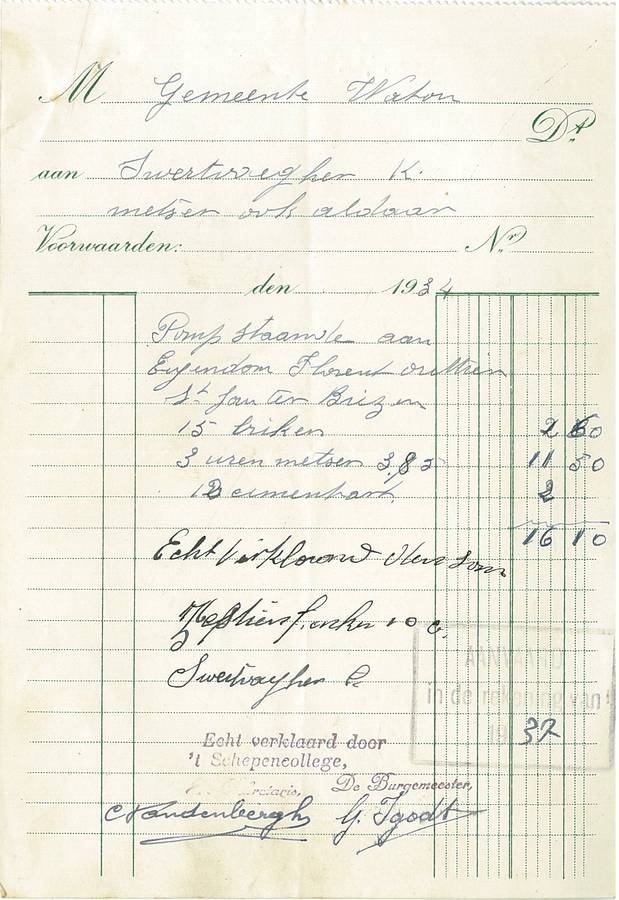 M Gemeente Watou
Dt
aan Swertvaegher K.
metser ook aldaar
Voorwaarden: Nr
den 1934
Pomp staande aan
Eigendom Florent
St Jan ter Biezen
15 briken 2 60
3 uren metsen 3,85 11 50
12 ciment 2
16 10
Echt verklaard
Zestien franken 10 c.
Swertvaegher C.
AANVAARD
in de rekening van
19 37
Echt verklaard door
't Schepencollege,
De Burgemeester,
C Vandenbergh G. Igodt